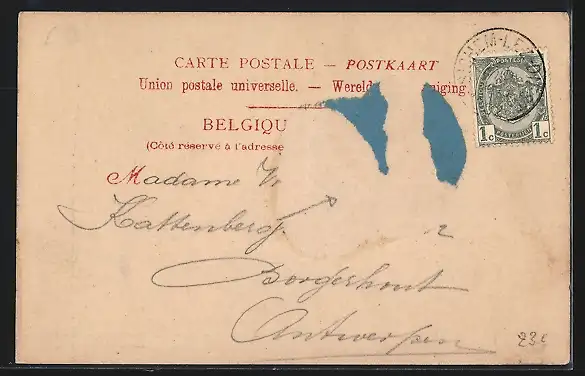 CARTE POSTALE — POSTKAART
Union postale universelle. —
BELGIQU
(Côté réservé à l'adresse
Madame
Kattenberg
2
Borgerhout
Antwerpen
POSTES
POSTERIJEN
1c 1c